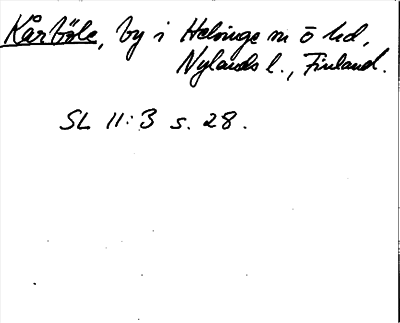 Kårböle, by i Helsinge sn ö hd,
Nylands l., Finland.
SL 11:3 s. 28.